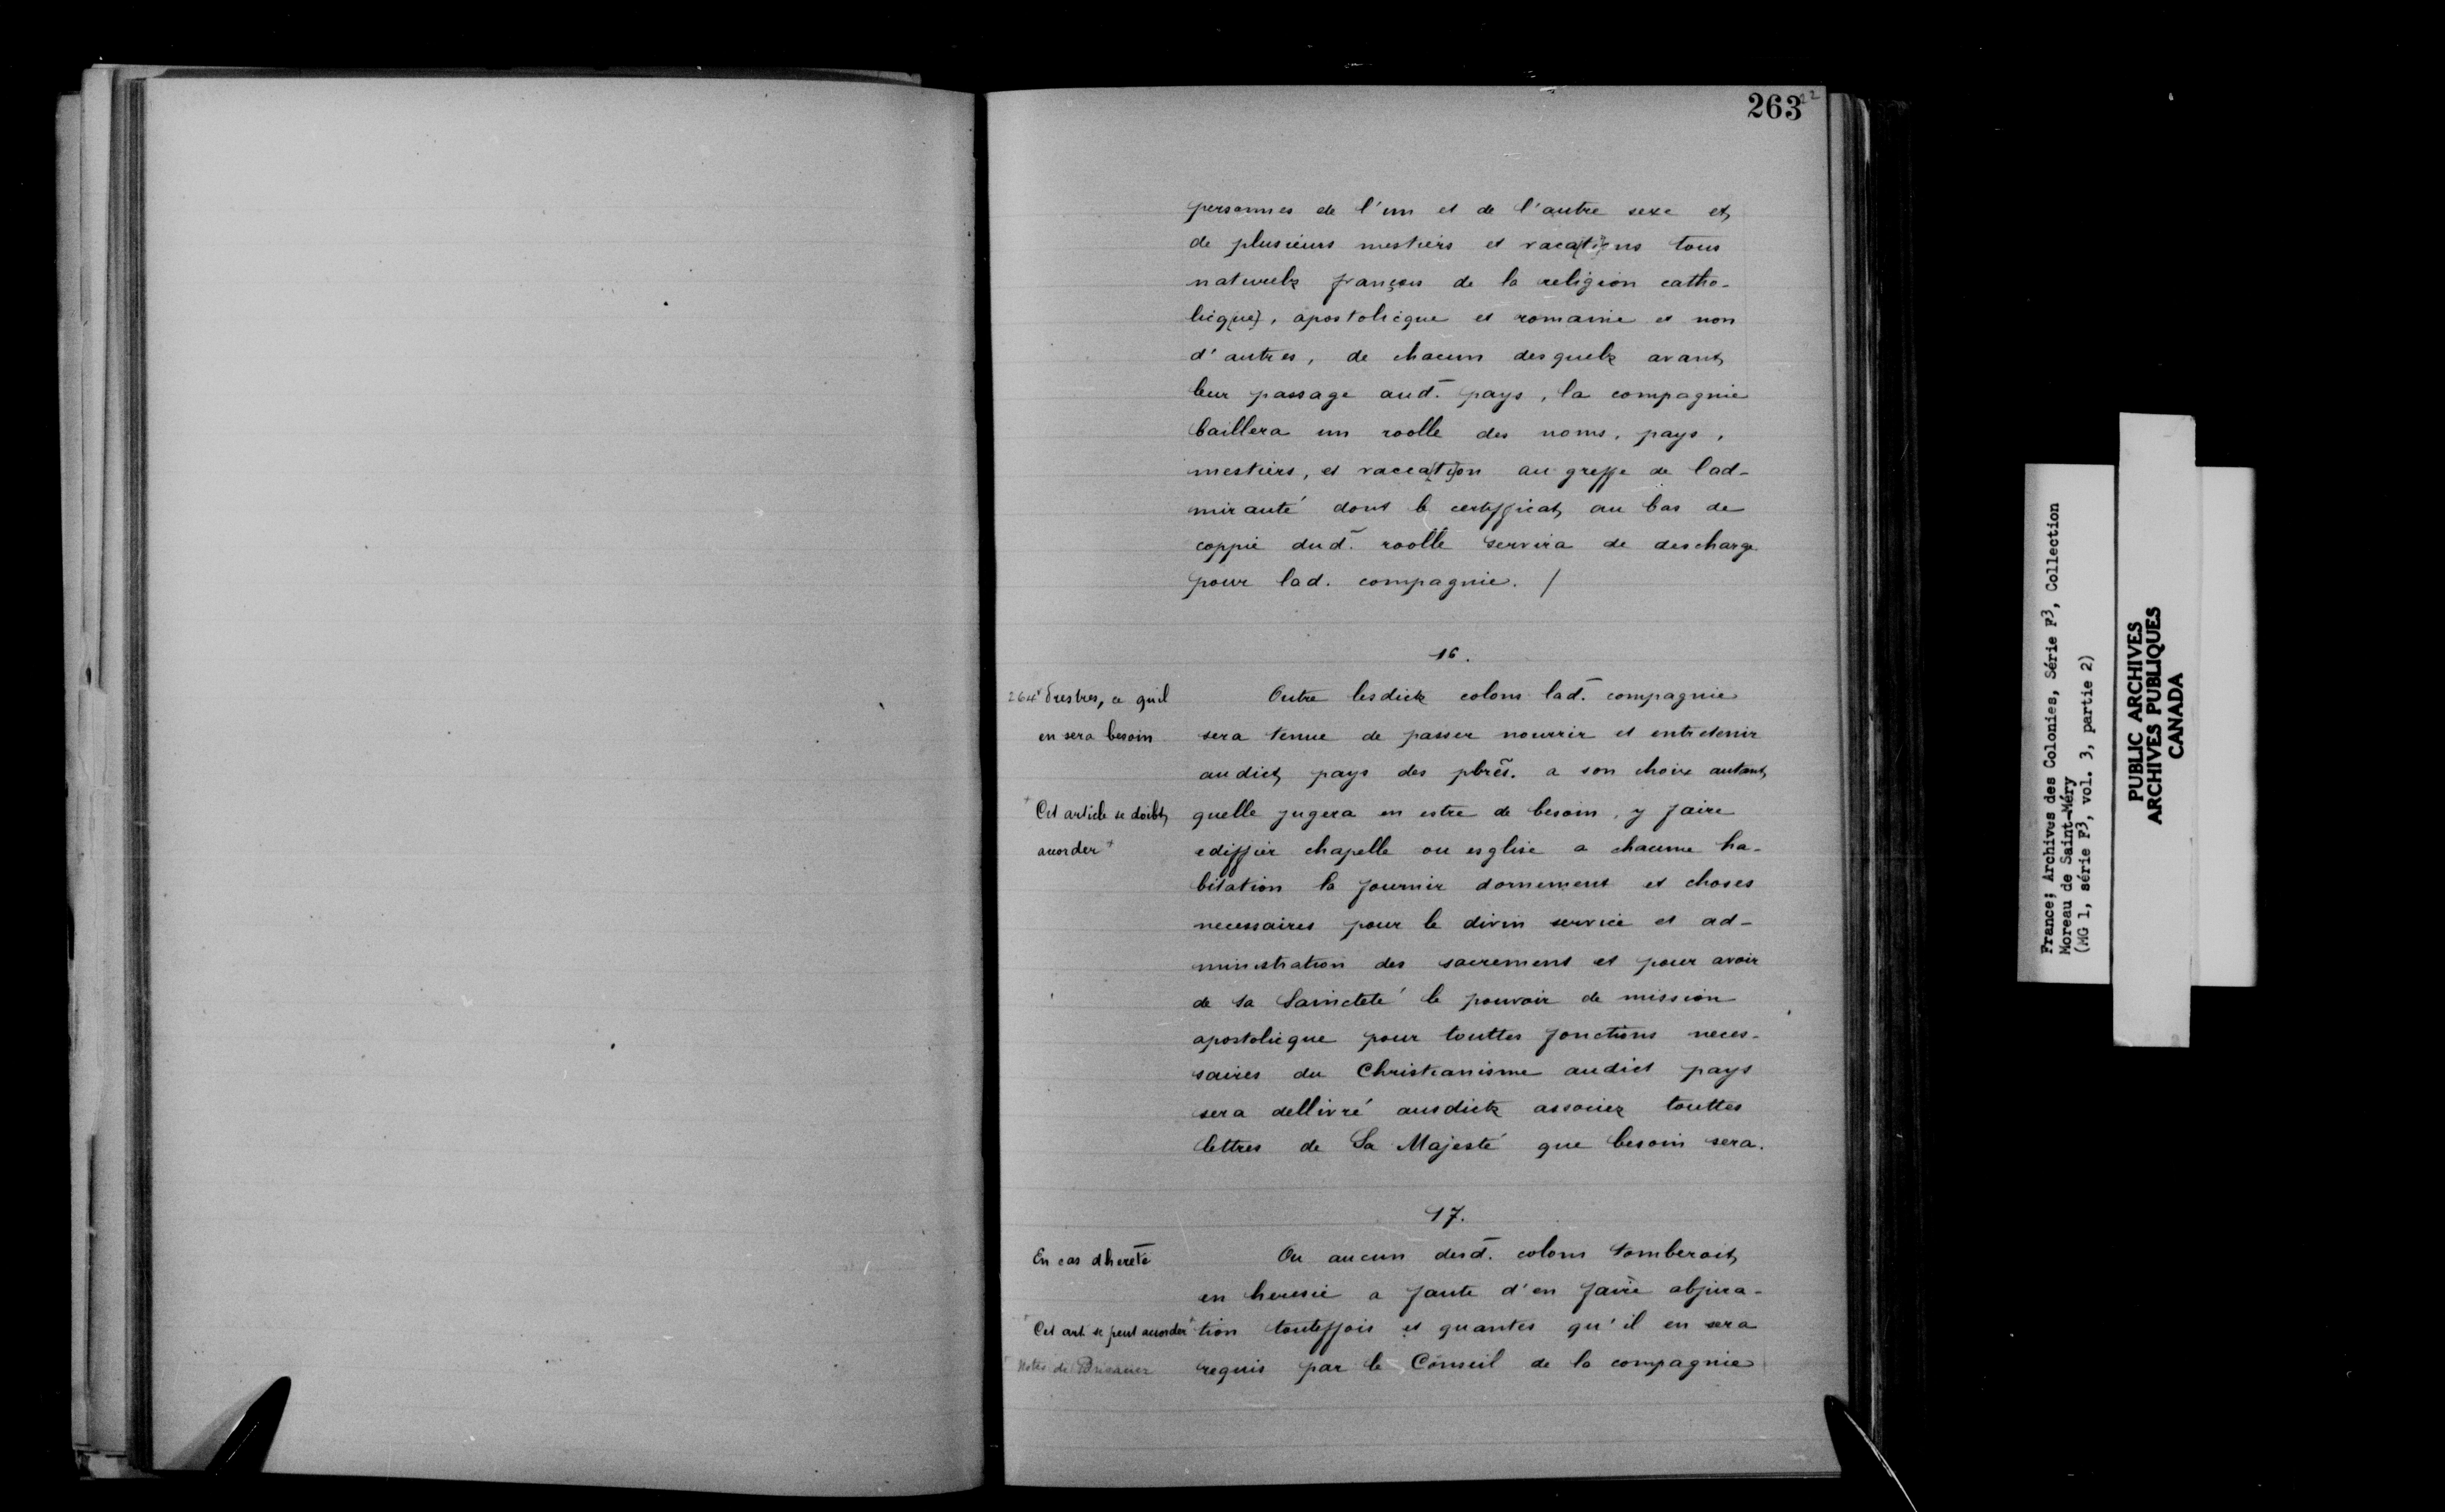 263
22
personnes de l'un et de l'autre sexe et
de plusieurs mestiers et vaca(ti)ons tous
naturelz françois de la religion catho-
licq(ue), apostolicque et romaine et non
d'autres, de chacun desquelz avant
leur passage aud. pays, la compagnie
baillera un roolle des noms, pays,
mestiers, et vacca(ti)on au greffe de lad-
mirauté dont le certifficat au bas de
coppie dud. roolle servira de descharge
pour lad. compagnie. /
16.
264 Prestres, ce quil
en sera besoin
+ Cet article se doibt
accorder +
Outre lesdictz colons lad. compagnie
sera tenue de passer nourrir et entretenir
audict pays des pbrẽs. a son choix autant
quelle jugera en estre de besoin, y faire
ediffier chapelle ou esglise a chacune ha-
bitation la fournir dornement et choses
necessaires pour le divin service et ad-
ministration des sacrement et pour avoir
de Sa Saincteté le pouvoir de mission
apostolicque pour touttes fonctions neces-
saires du Christianisme audict pays
sera dellivré ausdictz associez touttes
lettres de Sa Majesté que besoin sera.
17.
En cas dherẽte
+ Cet art. se peut accorder +
Notes de
Ou aucun desd. colons tomberoit
en heresie a faute d'en faire abjura-
tion touteffois et quantes qu'il en sera
requis par le Conseil de la compagnie
France; Archives des Colonies, Série F3, Collection
Moreau de Saint-Méry
(MG 1, série F3, vol. 3, partie 2)
PUBLIC ARCHIVES
ARCHIVES PUBLIQUES
CANADA